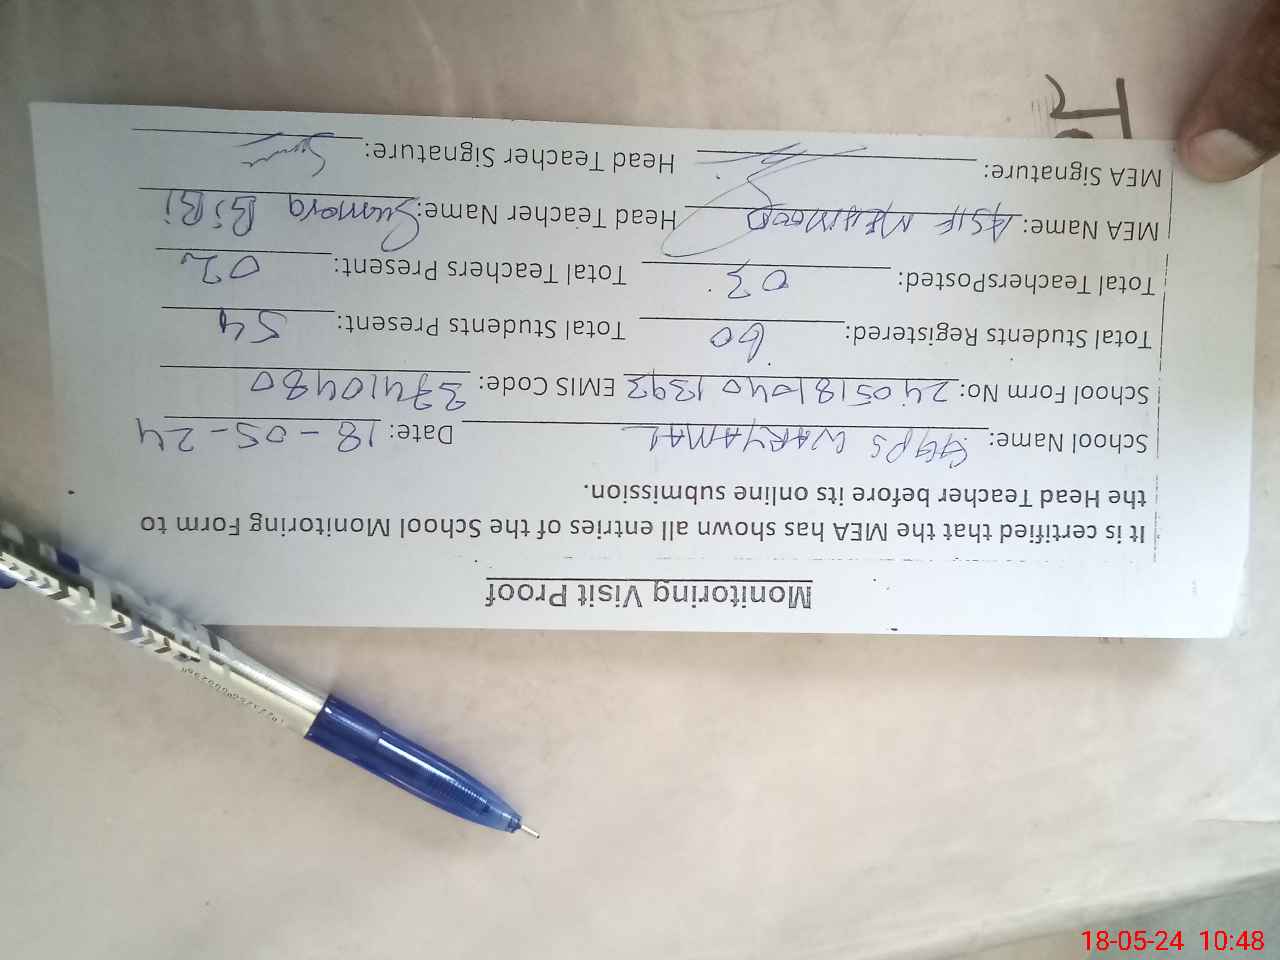 Monitoring Visit Proof
It is certified that the MEA has shown all entries of the School Monitoring Form to
the Head Teacher before its online submission.
School Name: GGPS WARYAMAL Date: 18-05-24
School Form No: 24051810401393 EMIS Code: 37410480
Total Students Registered: 60 Total Students Present: 54
Total TeachersPosted: 03 Total Teachers Present: 02
MEA Name: ASIF MEHMOOD Head Teacher Name: Sumaira BiBi
MEA Signature: Head Teacher Signature:
18-05-24 10:48